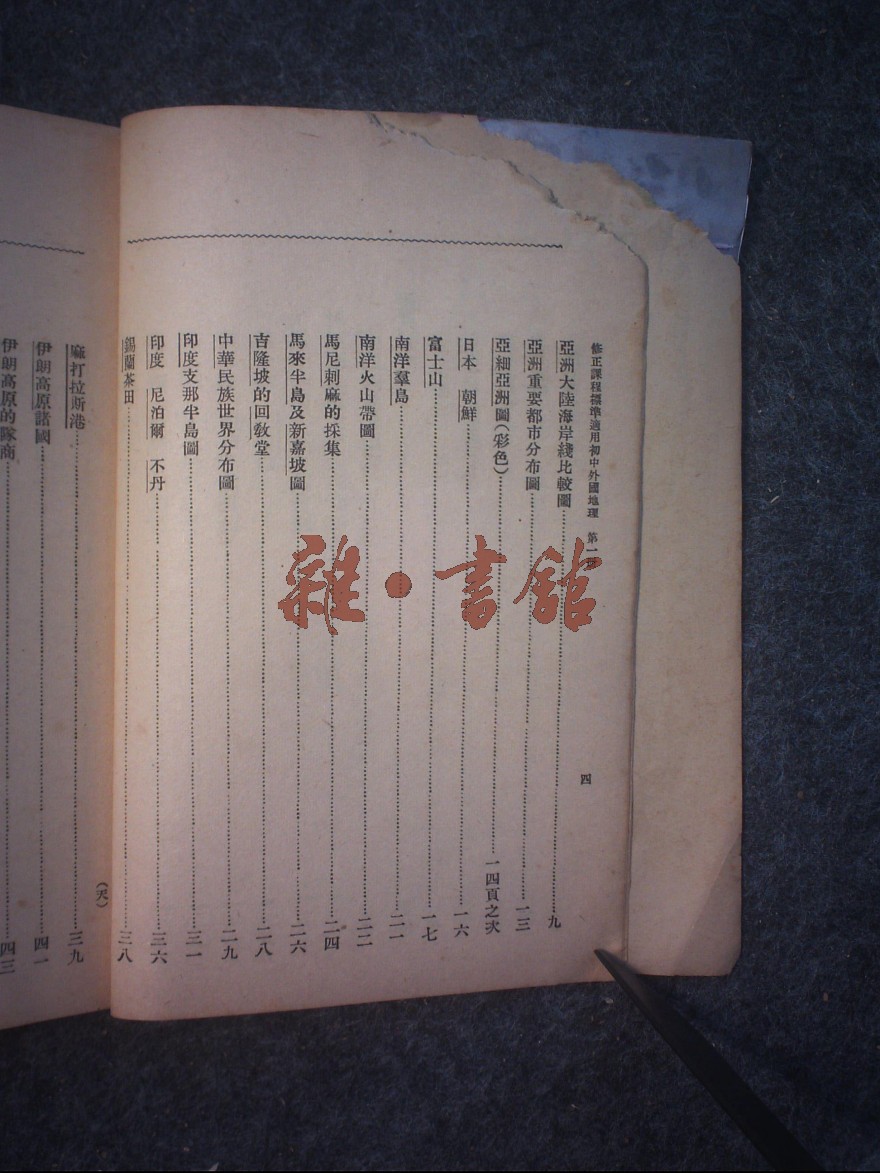 修正課程標準適用初中外國地理　第一
四
亞洲大陸海岸綫比較圖……九
亞洲重要都市分布圖……一三
亞細亞洲圖(彩色)……一四頁之次
日本　朝鮮……一六
富士山……一七
南洋羣島……二一
南洋火山帶圖……二二
馬尼剌麻的採集……二四
馬來半島及新嘉坡圖……二六
吉隆坡的回敎堂……二八
中華民族世界分布圖……二九
印度支那半島圖……三一
印度　尼泊爾　不丹……三六
錫蘭茶田……三八
麻打拉斯港……三九
(天)
伊朗高原諸國……四一
伊朗高原的隊商……四三
雜·書館